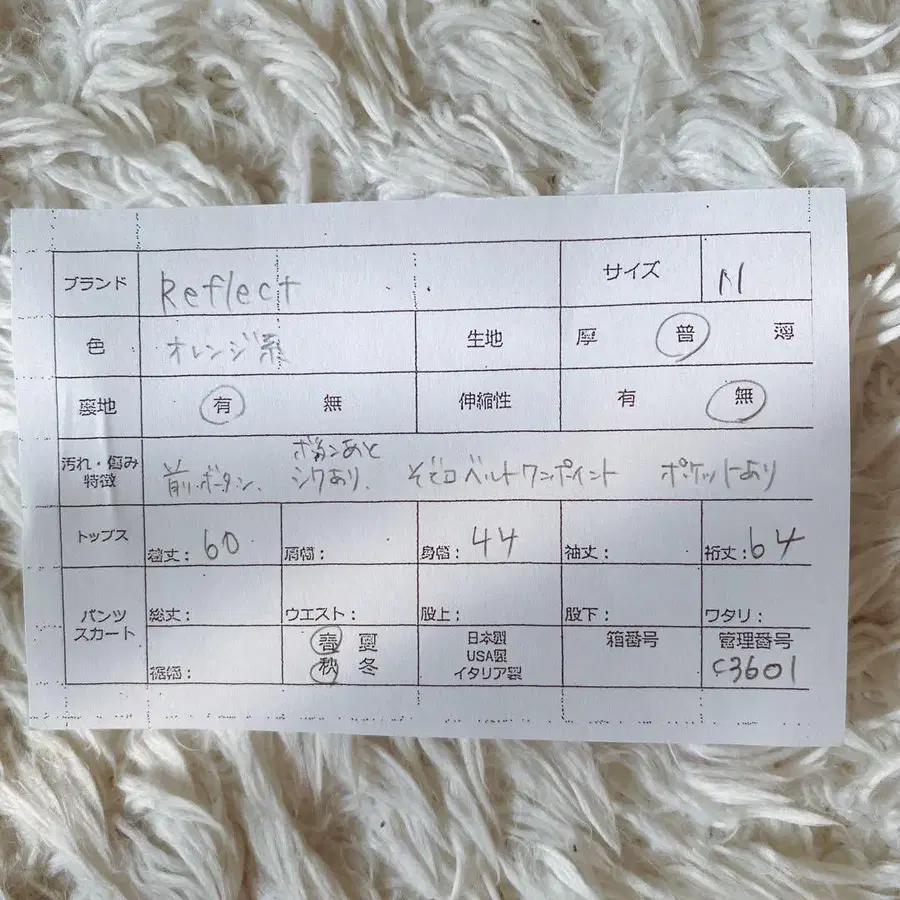 ブランド Reflect サイズ 11
色 オレンジ系 生地 厚 普 薄
裏地 有 無 伸縮性 有 無
汚れ・傷み ボタンあと
特徴 前ボタン、シワあり、そで口ベルトワンポイント ポケットあり
トップス 着丈:60 肩幅: 身幅:44 袖丈: 裄丈:64
パンツ 総丈: ウエスト: 股上: 股下: ワタリ:
スカート 春 夏 日本製 箱番号 管理番号
USA製
裾幅: 秋 冬 イタリア製 C3601